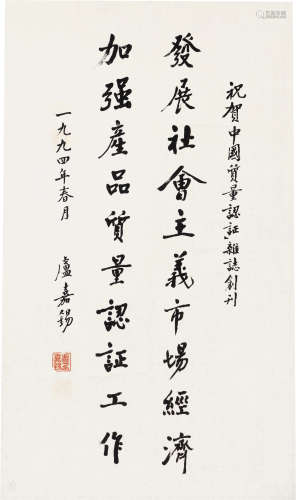 祝賀中國質量認証雜誌創刊
發展社會主義市場經濟
加强產品質量認証工作
一九九四年春月
盧嘉錫